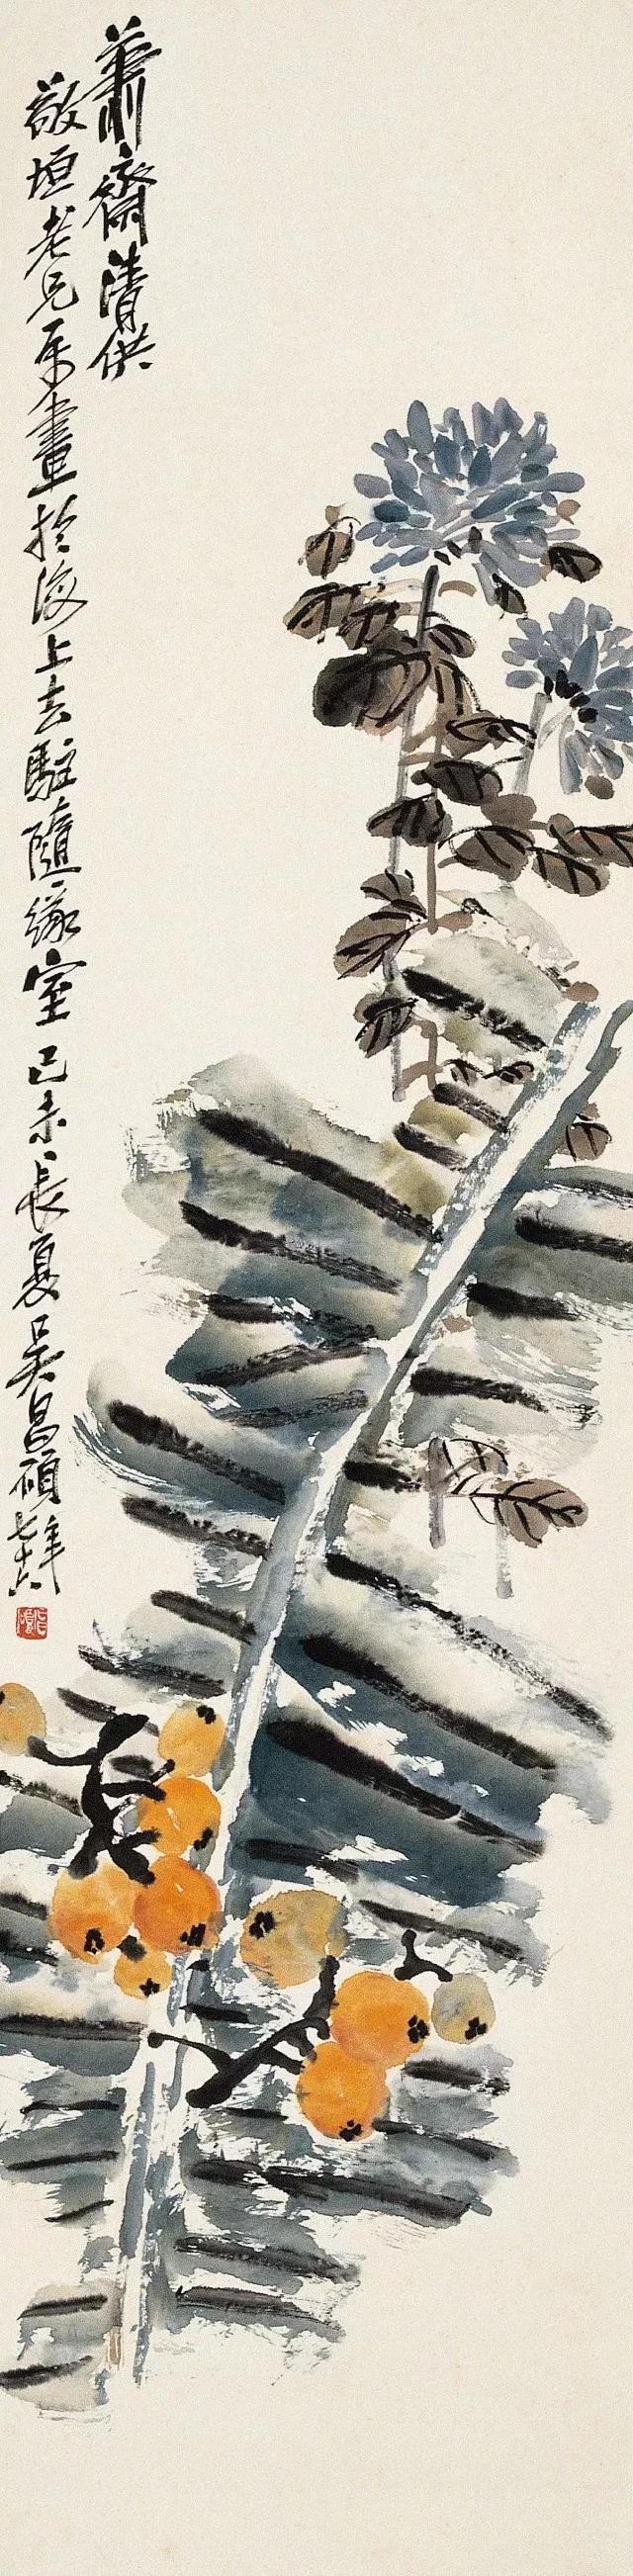 蕭齋清供
敬垣老兄屬畫於海上去駐隨緣室己未長夏吳昌碩年七十六